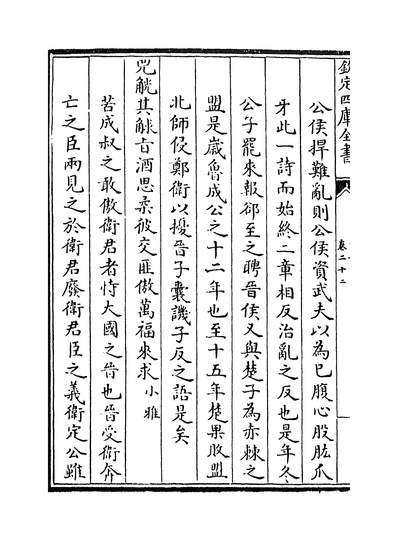 欽定四庫全書
卷二十二
公侯捍難亂則公侯資武夫以為已腹心股肱爪
牙此一詩而始終二章相反治亂之反也是年冬
公子罷來報郤至之聘晉侯又與楚子為赤棘之
盟是歲魯成公之十二年也至十五年楚果敗盟
北師侵鄭衛以擾晉子囊譏子反之語是矣
兕觥其觩旨酒思柔彼交匪傲萬福來求小雅
苦成叔之敢傲衛君者恃大國之晉也晉受衛奔
亡之臣兩見之於衛君廢衛君臣之義衛定公雖